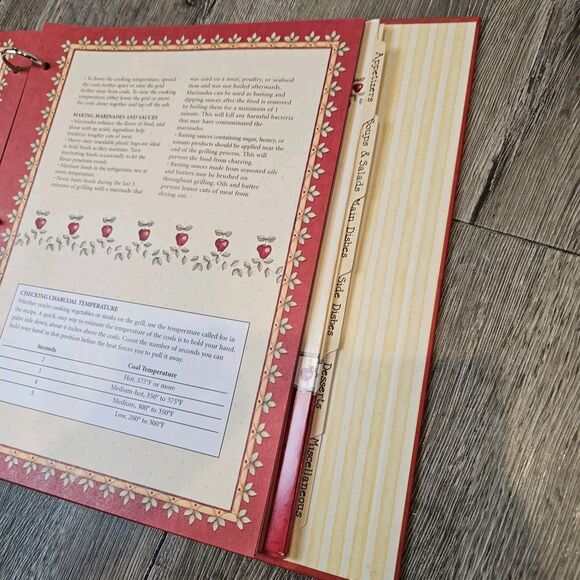 • To lower the cooking temperature, spread
the coals farther apart or raise the grid
farther away from coals. To raise the cooking
temperature, either lower the grid or move
the coals closer together and tap off the ash.
MAKING MARINADES AND SAUCES
• Marinades enhance the flavor of food, and
those with an acidic ingredient help
tenderize tougher cuts of meat.
• Heavy-duty resealable plastic bags are ideal
to hold foods as they marinate. Turn
marinating foods occasionally to let the
flavor penetrate evenly.
• Marinate foods in the refrigerator, not at
room temperature.
• Never baste foods during the last 5
minutes of grilling with a marinade that
was used on a meat, poultry, or seafood
item and was not boiled afterwards.
Marinades can be used as basting and
dipping sauces after the food is removed
by boiling them for a minimum of 1
minute. This will kill any harmful bacteria
that may have contaminated the
marinades.
• Basting sauces containing sugar, honey, or
tomato products should be applied near the
end of the grilling process. This will
prevent the food from charring.
• Basting sauces made from seasoned oils
and butters may be brushed on
throughout grilling. Oils and butter
prevent leaner cuts of meat from
drying out.
CHECKING CHARCOAL TEMPERATURE
Whether you're cooking vegetables or steaks on the grill, use the temperature called for in
the recipe. A quick, easy way to estimate the temperature of the coals is to hold your hand,
palm side down, about 4 inches above the coals. Count the number of seconds you can
hold your hand in that position before the heat forces you to pull it away.
Seconds Coal Temperature
2 Hot, 375°F or more
3 Medium-hot, 350° to 375°F
4 Medium, 300° to 350°F
5 Low, 200° to 300°F
Appetizers
Soups & Salads
Main Dishes
Side Dishes
Desserts
Miscellaneous